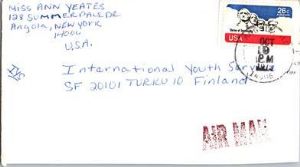 MISS ANN YEATES
128 SUMMERDALE DR.
Angola, NEW YORK
14006
U.S.A.
International Youth Serv
SF 20101 TURKU 10 Finland
AIR MAIL
26c
USA
OCT
PM